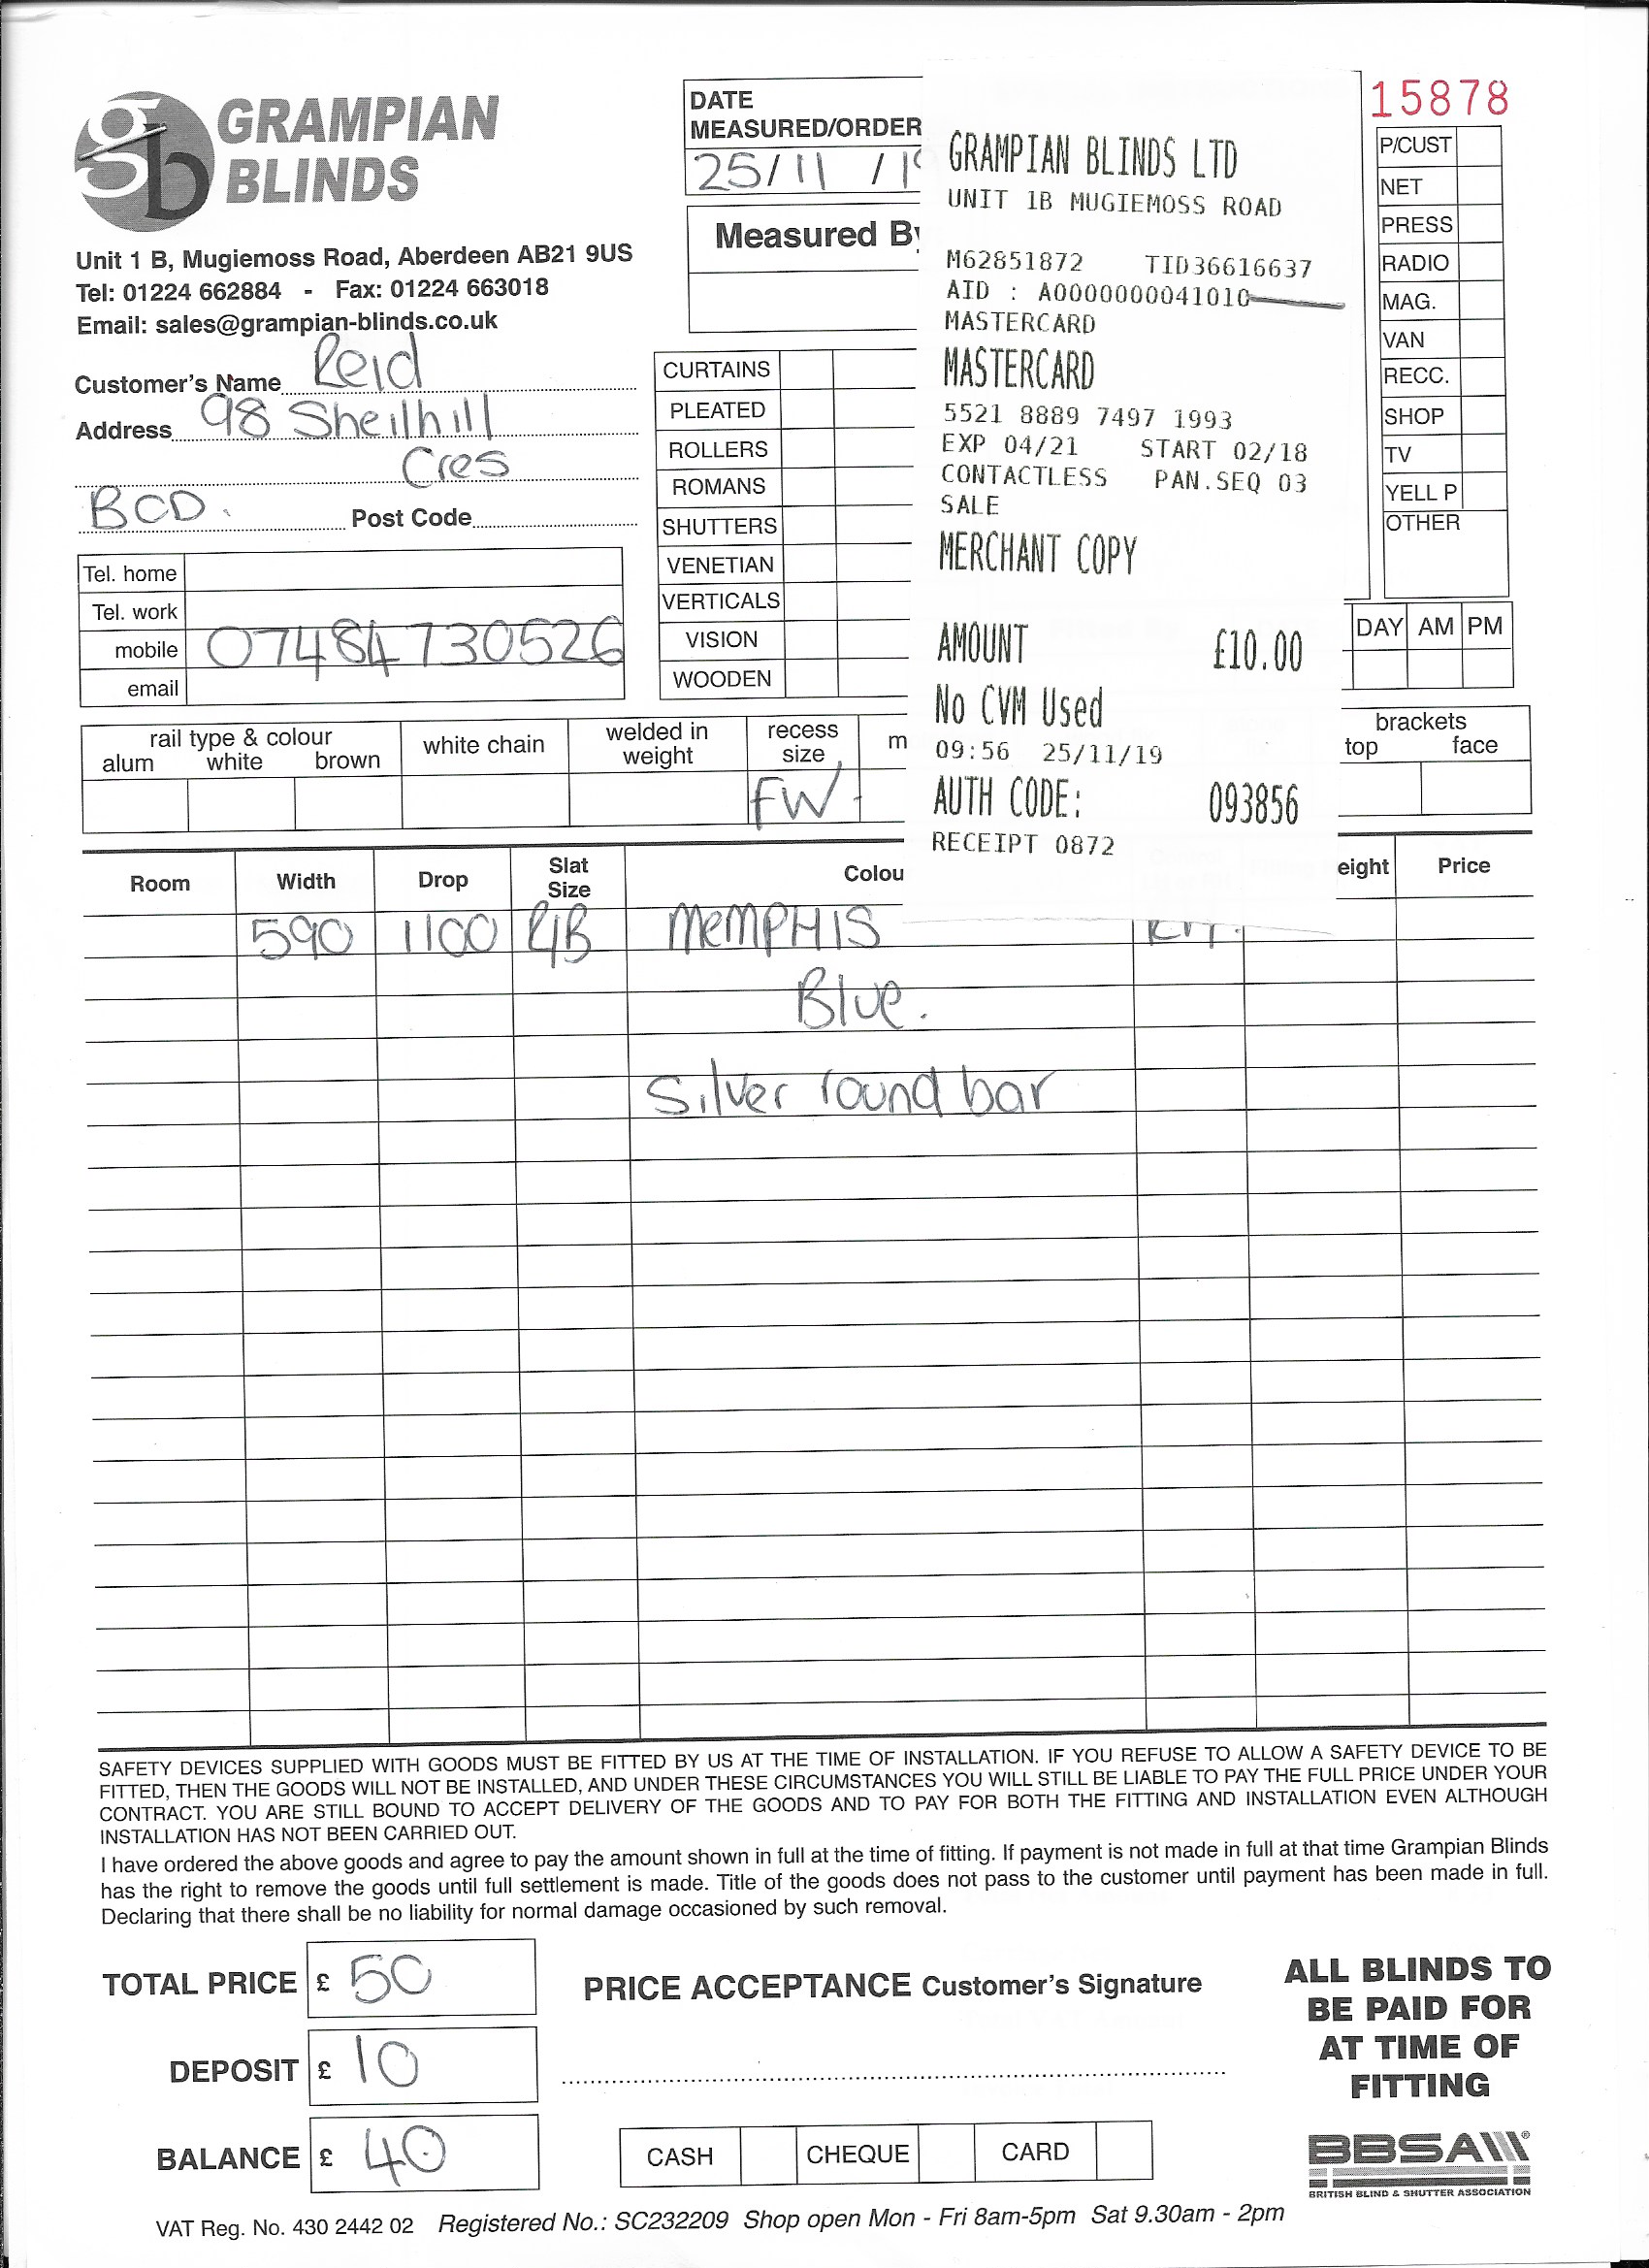 gb GRAMPIAN
BLINDS
Unit 1 B, Mugiemoss Road, Aberdeen AB21 9US
Tel: 01224 662884 - Fax: 01224 663018
Email: sales@grampian-blinds.co.uk
Customer's Name Reid
Address 98 Sheilhill
Cres
BOD. Post Code
Tel. home
Tel. work
mobile 07484730526
email
DATE
MEASURED/ORDER
25/11/19
Measured By
CURTAINS
PLEATED
ROLLERS
ROMANS
SHUTTERS
VENETIAN
VERTICALS
VISION
WOODEN
GRAMPIAN BLINDS LTD
UNIT 1B MUGIEMOSS ROAD
M62851872 TID36616637
AID : A0000000041010
MASTERCARD
MASTERCARD
5521 8889 7497 1993
EXP 04/21 START 02/18
CONTACTLESS PAN.SEQ 03
SALE
MERCHANT COPY
AMOUNT £10.00
No CVM Used
09:56 25/11/19
AUTH CODE: 093856
RECEIPT 0872
15878
P/CUST
NET
PRESS
RADIO
MAG.
VAN
RECC.
SHOP
TV
YELL P
OTHER
DAY AM PM
rail type & colour
alum white brown
white chain
welded in
weight
recess
size
m
brackets
top face
FW
Room Width Drop Slat
Size Colou eight Price
590 1100 R/B MEMPHIS
Blue.
Silver round bar
SAFETY DEVICES SUPPLIED WITH GOODS MUST BE FITTED BY US AT THE TIME OF INSTALLATION. IF YOU REFUSE TO ALLOW A SAFETY DEVICE TO BE
FITTED, THEN THE GOODS WILL NOT BE INSTALLED, AND UNDER THESE CIRCUMSTANCES YOU WILL STILL BE LIABLE TO PAY THE FULL PRICE UNDER YOUR
CONTRACT. YOU ARE STILL BOUND TO ACCEPT DELIVERY OF THE GOODS AND TO PAY FOR BOTH THE FITTING AND INSTALLATION EVEN ALTHOUGH
INSTALLATION HAS NOT BEEN CARRIED OUT.
I have ordered the above goods and agree to pay the amount shown in full at the time of fitting. If payment is not made in full at that time Grampian Blinds
has the right to remove the goods until full settlement is made. Title of the goods does not pass to the customer until payment has been made in full.
Declaring that there shall be no liability for normal damage occasioned by such removal.
TOTAL PRICE £ 50
DEPOSIT £ 10
BALANCE £ 40
PRICE ACCEPTANCE Customer's Signature
CASH CHEQUE CARD
ALL BLINDS TO
BE PAID FOR
AT TIME OF
FITTING
BBSA
BRITISH BLIND & SHUTTER ASSOCIATION
VAT Reg. No. 430 2442 02 Registered No.: SC232209 Shop open Mon - Fri 8am-5pm Sat 9.30am - 2pm